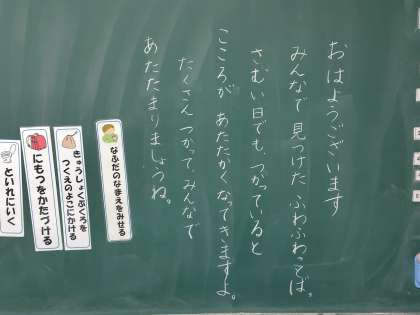 おはようございます
みんなで 見つけた ふわふわことば。
さむい日でも、つかっていると
こころが あたたかくなってきますよ。
たくさん つかって、みんなで
あたたまりましょうね。
なふだのなまえをみせる
きゅうしょくぶくろを
つくえのよこにかける
にもつをかたづける
といれにいく